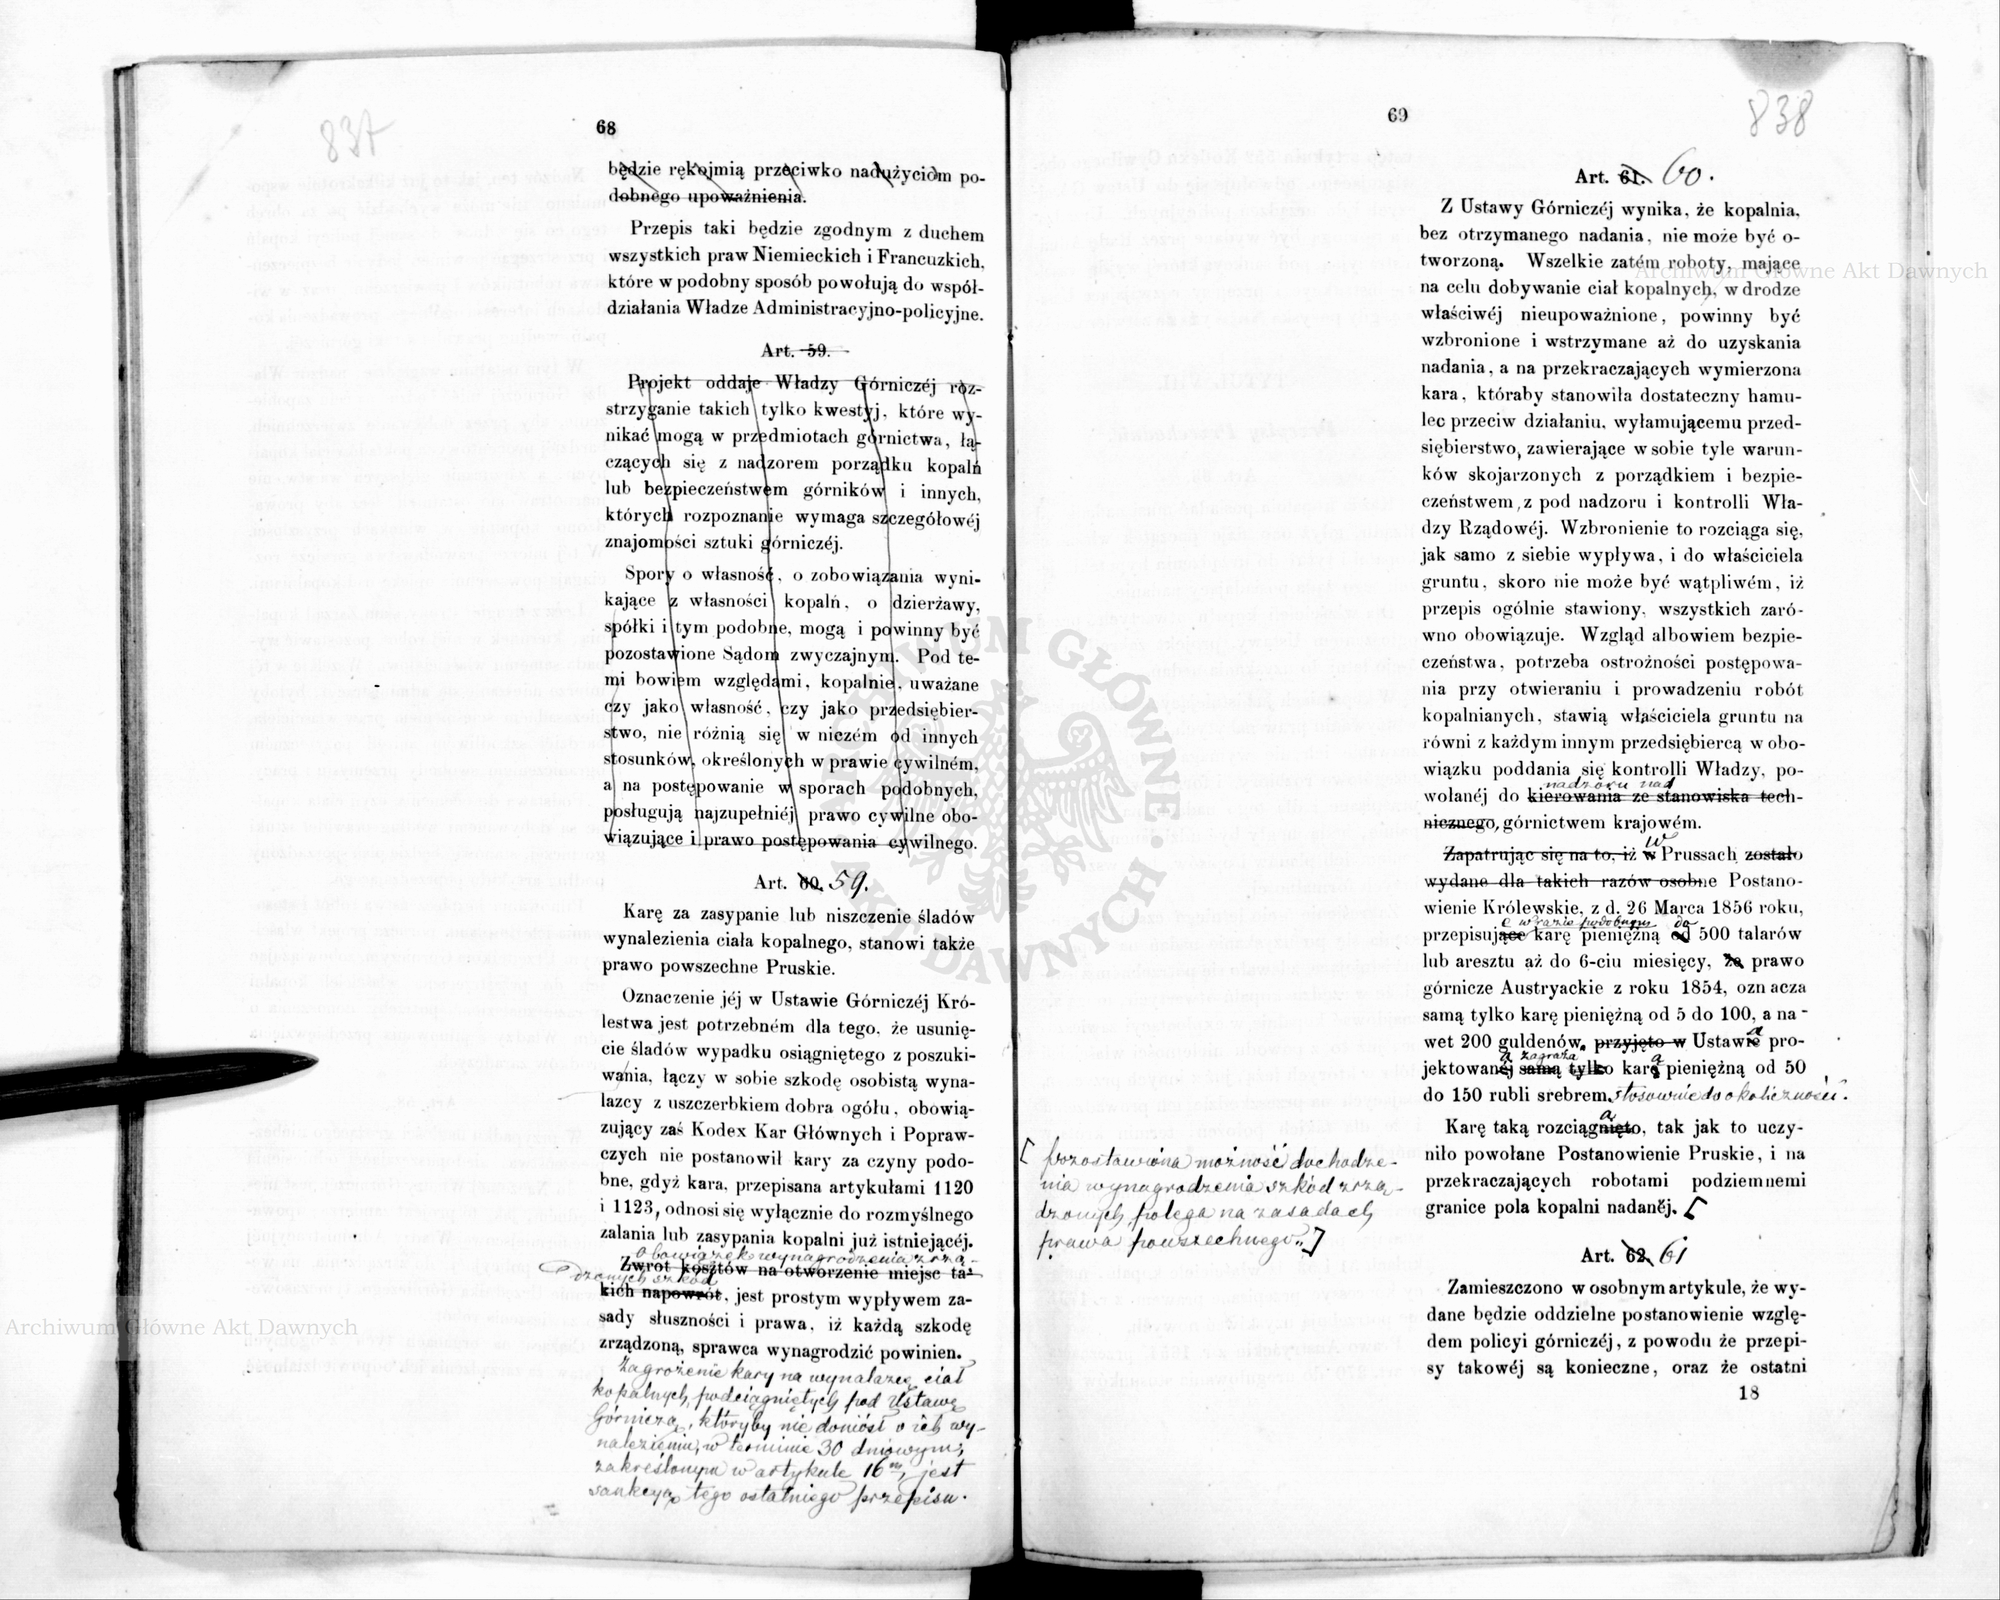 837
68
będzie rękojmią przeciwko nadużyciom po-
dobnego upoważnienia.
Przepis taki będzie zgodnym z duchem
wszystkich praw Niemieckich i Francuzkich,
które w podobny sposób powołują do współ-
działania Władze Administracyjno-policyjne.
Art. 59.
Projekt oddaje Władzy Górniczéj roz-
strzyganie takich tylko kwestyj, które wy-
nikać mogą w przedmiotach górnictwa, łą-
czących się z nadzorem porządku kopalń
lub bezpieczeństwem górników i innych,
których rozpoznanie wymaga szczegółowéj
znajomości sztuki górniczéj.
Spory o własność, o zobowiązania wyni-
kające z własności kopalń, o dzierżawy,
spółki i tym podobne, mogą i powinny być
pozostawione Sądom zwyczajnym. Pod te-
mi bowiem względami, kopalnie, uważane
czy jako własność, czy jako przedsiębier-
stwo, nie różnią się w niczém od innych
stosunków, określonych w prawie cywilném,
a na postępowanie w sporach podobnych,
posługują najzupełniéj prawo cywilne obo-
wiązujące i prawo postępowania cywilnego.
Art. 60. 59.
Karę za zasypanie lub niszczenie śladów
wynalezienia ciała kopalnego, stanowi także
prawo powszechne Pruskie.
Oznaczenie jéj w Ustawie Górniczéj Kró-
lestwa jest potrzebném dla tego, że usunię-
cie śladów wypadku osiągniętego z poszuki-
wania, łączy w sobie szkodę osobistą wyna-
lazcy z uszczerbkiem dobra ogółu, obowią-
zujący zaś Kodex Kar Głównych i Popraw-
czych nie postanowił kary za czyny podo-
bne, gdyż kara, przepisana artykułami 1120
i 1123, odnosi się wyłącznie do rozmyślnego
zalania lub zasypania kopalni już istniejącéj.
obowiązek wynagrodzenia zrzą-
Zwrot kosztów na otworzenie miejsc ta-
dzonych szkód
kich napowrót, jest prostym wypływem za-
sady słuszności i prawa, iż każdą szkodę
zrządzoną, sprawca wynagrodzić powinien.
Zagrożenie kary na wynalazcę ciał
kopalnych, podciągniętych pod Ustawę
Górniczą, któryby nie doniósł o ich wy-
nalezieniu, w terminie 30 dniowym,
zakreślonym w artykule 16m, jest
sankcyą tego ostatniego przepisu.
838
69
Art. 61. 60.
Z Ustawy Górniczéj wynika, że kopalnia,
bez otrzymanego nadania, nie może być o-
tworzoną. Wszelkie zatém roboty, mające
na celu dobywanie ciał kopalnych, w drodze
właściwéj nieupoważnione, powinny być
wzbronione i wstrzymane aż do uzyskania
nadania, a na przekraczających wymierzona
kara, któraby stanowiła dostateczny hamu-
lec przeciw działaniu, wyłamującemu przed-
siębierstwo, zawierające w sobie tyle warun-
ków skojarzonych z porządkiem i bezpie-
czeństwem, z pod nadzoru i kontrolli Wła-
dzy Rządowéj. Wzbronienie to rozciąga się,
jak samo z siebie wypływa, i do właściciela
gruntu, skoro nie może być wątpliwém, iż
przepis ogólnie stawiony, wszystkich zaró-
wno obowiązuje. Wzgląd albowiem bezpie-
czeństwa, potrzeba ostrożności postępowa-
nia przy otwieraniu i prowadzeniu robót
kopalnianych, stawią właściciela gruntu na
równi z każdym innym przedsiębiercą w obo-
wiązku poddania się kontrolli Władzy, po-
nadzoru nad
wołanéj do kierowania ze stanowiska tech-
nicznego, górnictwem krajowém.
W
Zapatrując się na to, iż w Prussach zostało
wydane dla takich razów osobne Postano-
wienie Królewskie, z d. 26 Marca 1856 roku,
e w razie podobnym do
przepisujące karę pieniężną od 500 talarów
lub aresztu aż do 6-ciu miesięcy, że prawo
górnicze Austryackie z roku 1854, oznacza
samą tylko karę pieniężną od 5 do 100, a na-
wet 200 guldenów, przyjęto w Ustawie pro-
a zagraża ą
jektowanéj samą tylko karę pieniężną od 50
do 150 rubli srebrem, stosownie do okoliczności.
Karę taką rozciągnięto, tak jak to uczy-
niło powołane Postanowienie Pruskie, i na
przekraczających robotami podziemnemi
granice pola kopalni nadanéj. [
[ pozostawiona możność dochodze-
nia wynagrodzenia szkód zrzą-
dzonych, polega na zasadach
prawa powszechnego.]
Art. 62. 61
Zamieszczono w osobnym artykule, że wy-
dane będzie oddzielne postanowienie wzglę-
dem policyi górniczéj, z powodu że przepi-
sy takowéj są konieczne, oraz że ostatni
18
Archiwum Główne Akt Dawnych
Archiwum Główne Akt Dawnych
ARCHIWUM GŁÓWNE AKT DAWNYCH